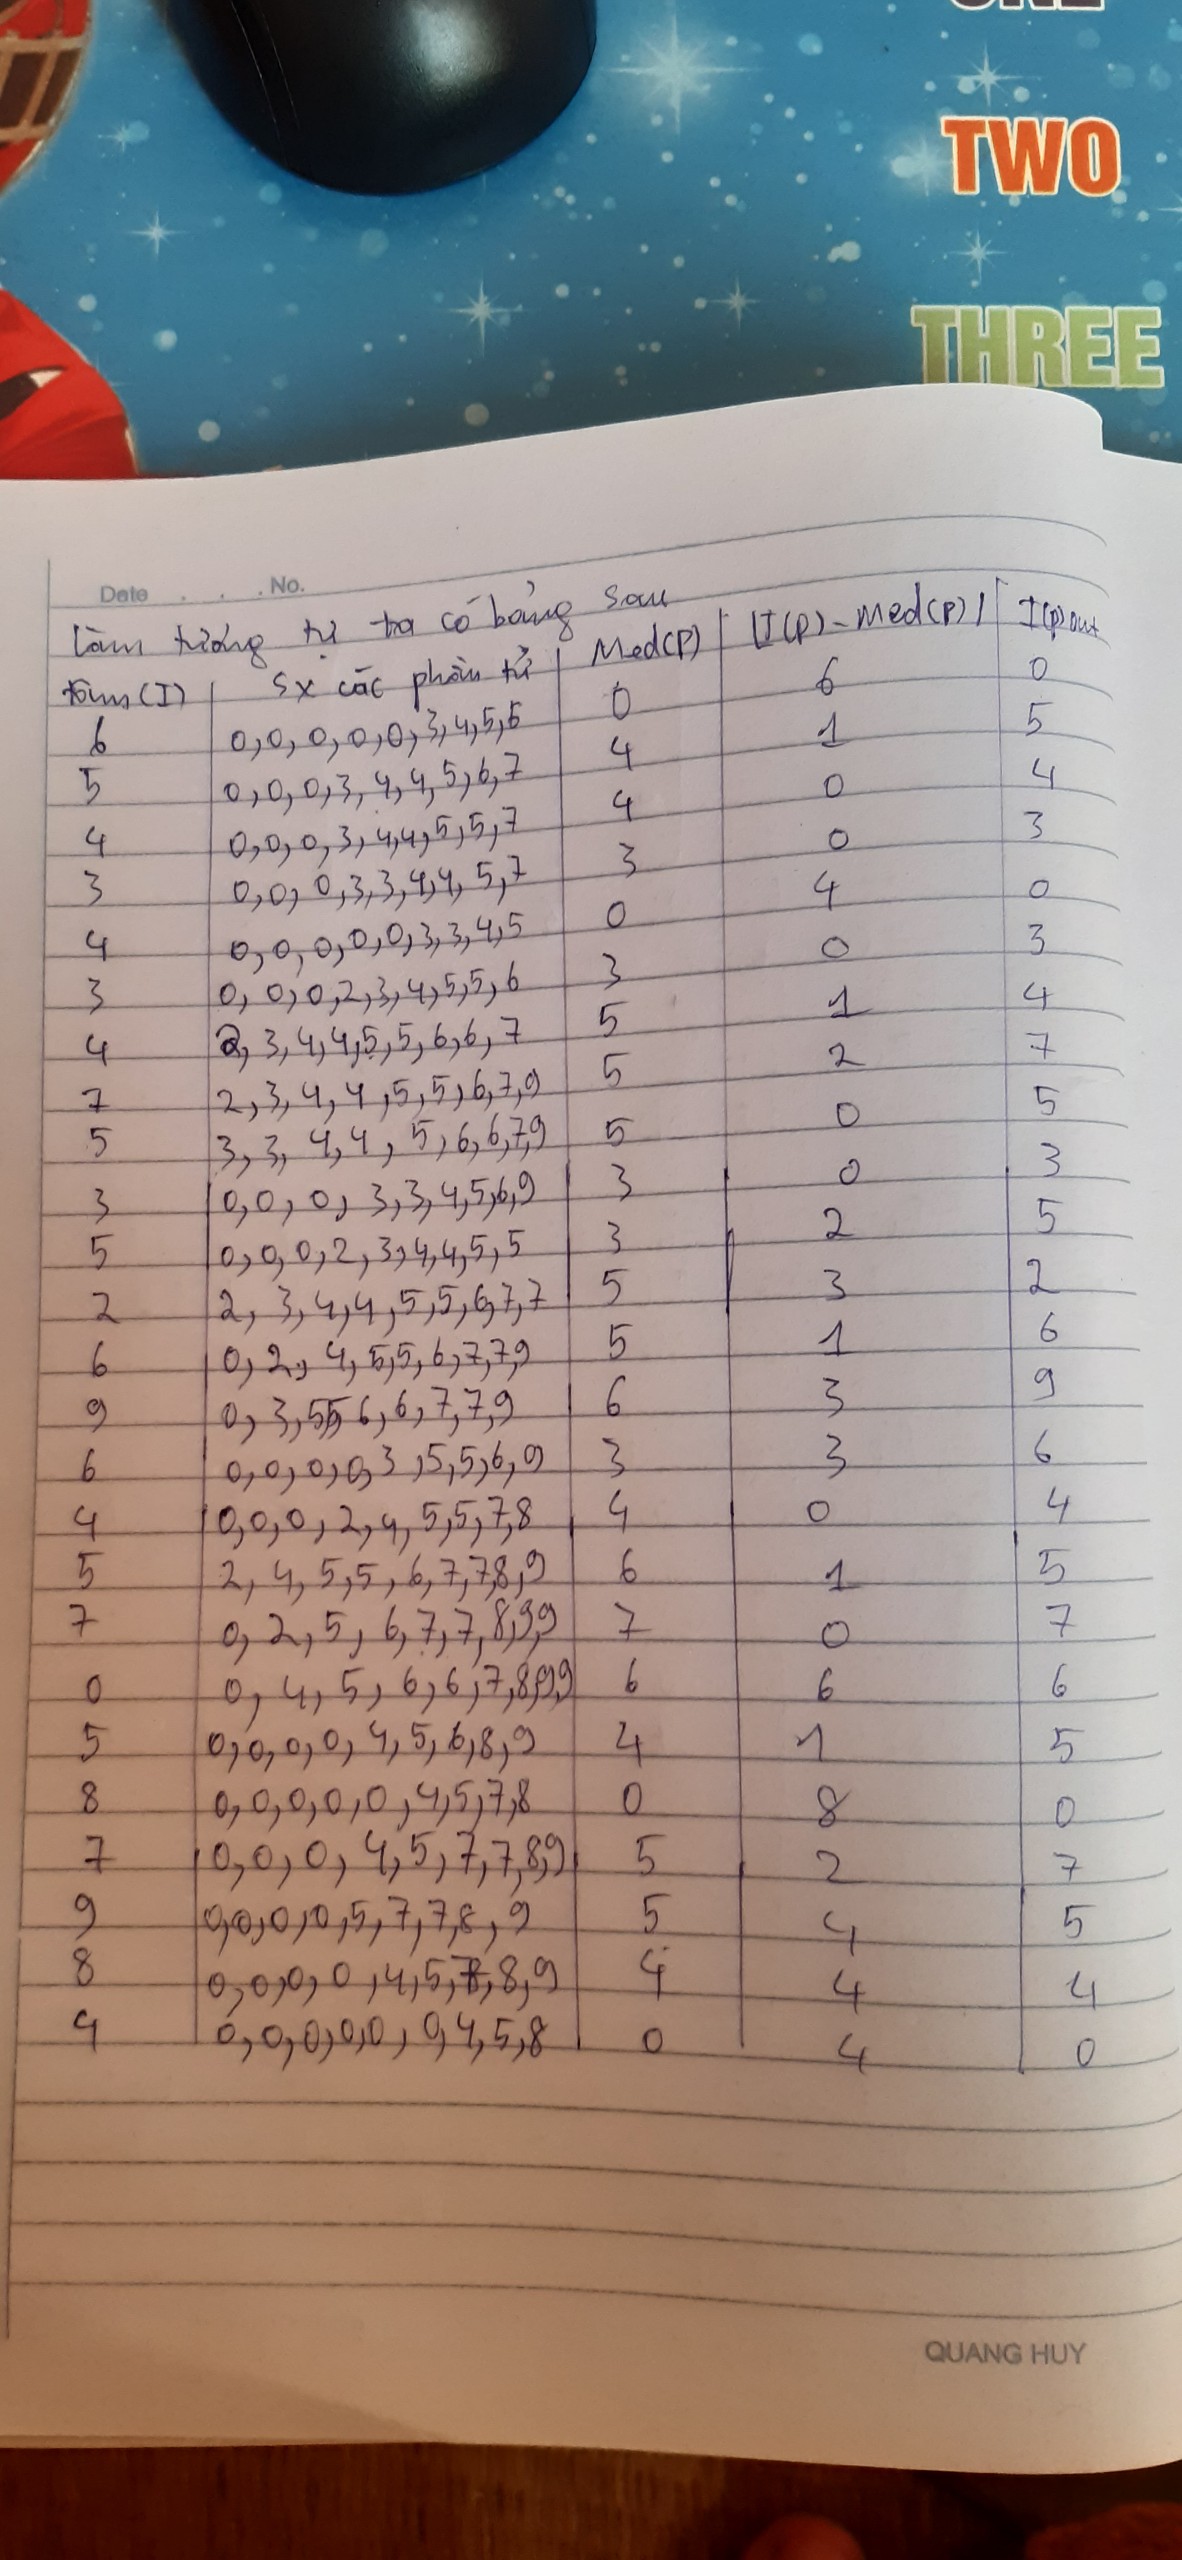 ONE
TWO
THREE
Date . . . No.
Làm tương tự ta có bảng sau
tâm(I) | sx các phần tử | Med(P) | |I(P)-Med(P)| | I(P)out
6 | 0,0,0,0,0,3,4,5,5 | 0 | 6 | 0
5 | 0,0,0,3,4,4,5,6,7 | 4 | 1 | 5
4 | 0,0,0,3,4,4,5,5,7 | 4 | 0 | 4
3 | 0,0,0,3,3,4,4,5,7 | 3 | 0 | 3
4 | 0,0,0,0,0,3,3,4,5 | 0 | 4 | 0
3 | 0,0,0,2,3,4,5,5,6 | 3 | 0 | 3
4 | 2,3,4,4,5,5,6,6,7 | 5 | 1 | 4
7 | 2,3,4,4,5,5,6,7,9 | 5 | 2 | 7
5 | 3,3,4,4,5,6,6,7,9 | 5 | 0 | 5
3 | 0,0,0,3,3,4,5,6,9 | 3 | 0 | 3
5 | 0,0,0,2,3,4,4,5,5 | 3 | 2 | 5
2 | 2,3,4,4,5,5,6,7,7 | 5 | 3 | 2
6 | 0,2,4,5,5,6,7,7,9 | 5 | 1 | 6
9 | 0,3,5,5,6,6,7,7,9 | 6 | 3 | 9
6 | 0,0,0,0,3,5,5,6,9 | 3 | 3 | 6
4 | 0,0,0,2,4,5,5,7,8 | 4 | 0 | 4
5 | 2,4,5,5,6,7,7,8,9 | 6 | 1 | 5
7 | 0,2,5,6,7,7,8,9,9 | 7 | 0 | 7
0 | 0,4,5,6,6,7,8,9,9 | 6 | 6 | 6
5 | 0,0,0,0,4,5,6,8,9 | 4 | 1 | 5
8 | 0,0,0,0,0,4,5,7,8 | 0 | 8 | 0
7 | 0,0,0,4,5,7,7,8,9 | 5 | 2 | 7
9 | 0,0,0,0,5,7,7,8,9 | 5 | 4 | 5
8 | 0,0,0,0,4,5,7,8,9 | 4 | 4 | 4
4 | 0,0,0,0,0,0,4,5,8 | 0 | 4 | 0
QUANG HUY